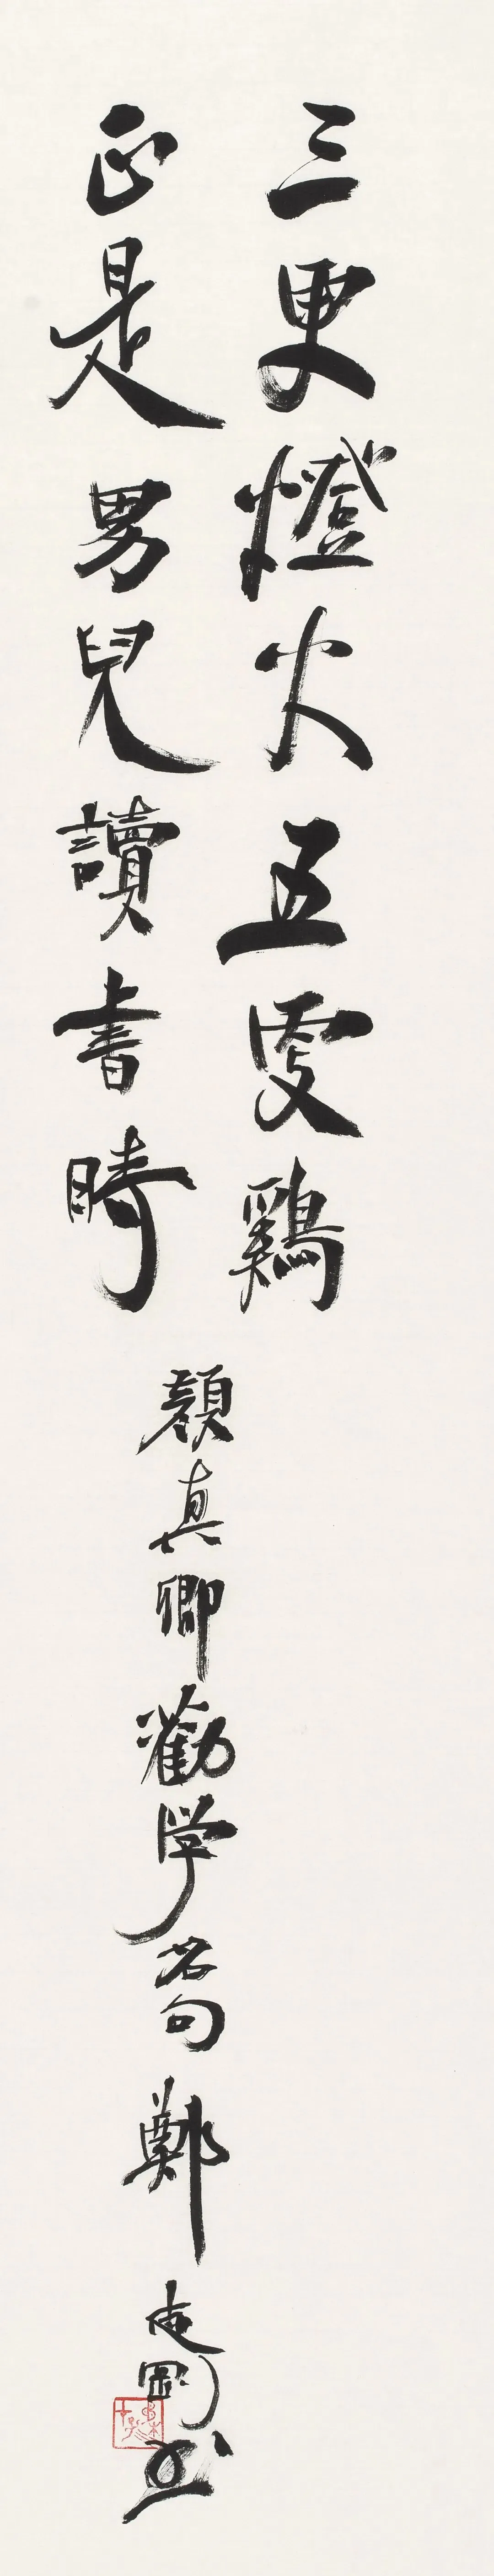 三更燈火五更鷄
正是男兒讀書時
顔真卿勸学名句 鄭